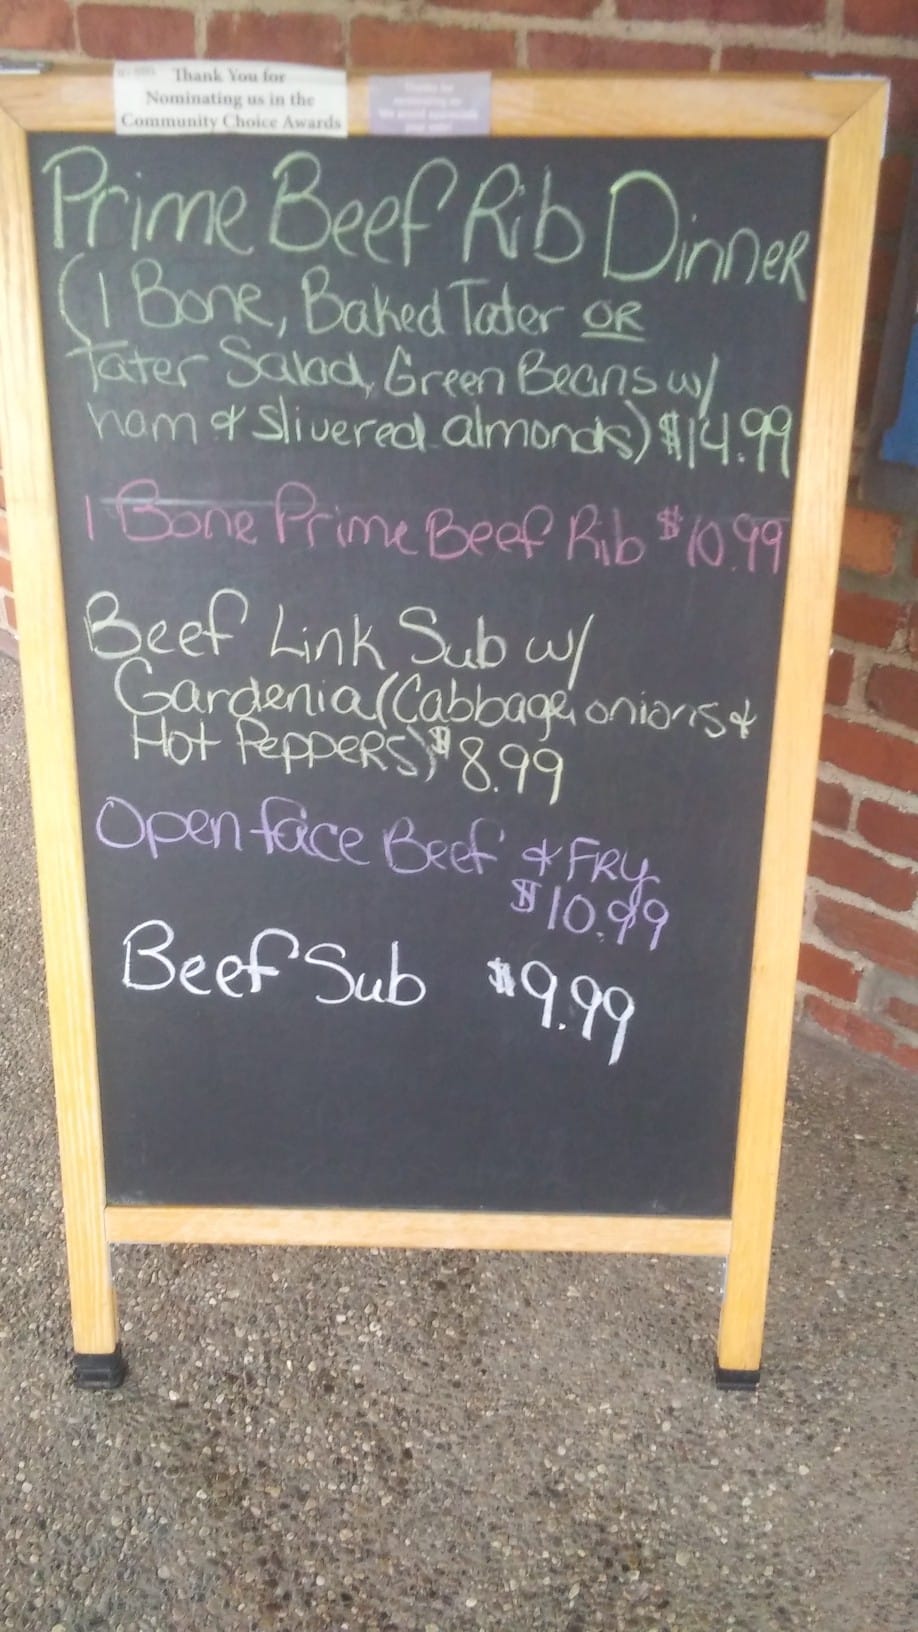 Thank You for
Nominating us in the
Community Choice Awards
Prime Beef Rib Dinner
(1 Bone, Baked Tater OR
Tater Salad, Green Beans w/
ham & slivered almonds) $14.99
1 Bone Prime Beef Rib $10.99
Beef Link Sub w/
Gardenia (Cabbage, onions &
Hot Peppers) $8.99
Open face Beef & FRY
$10.99
Beef Sub $9.99